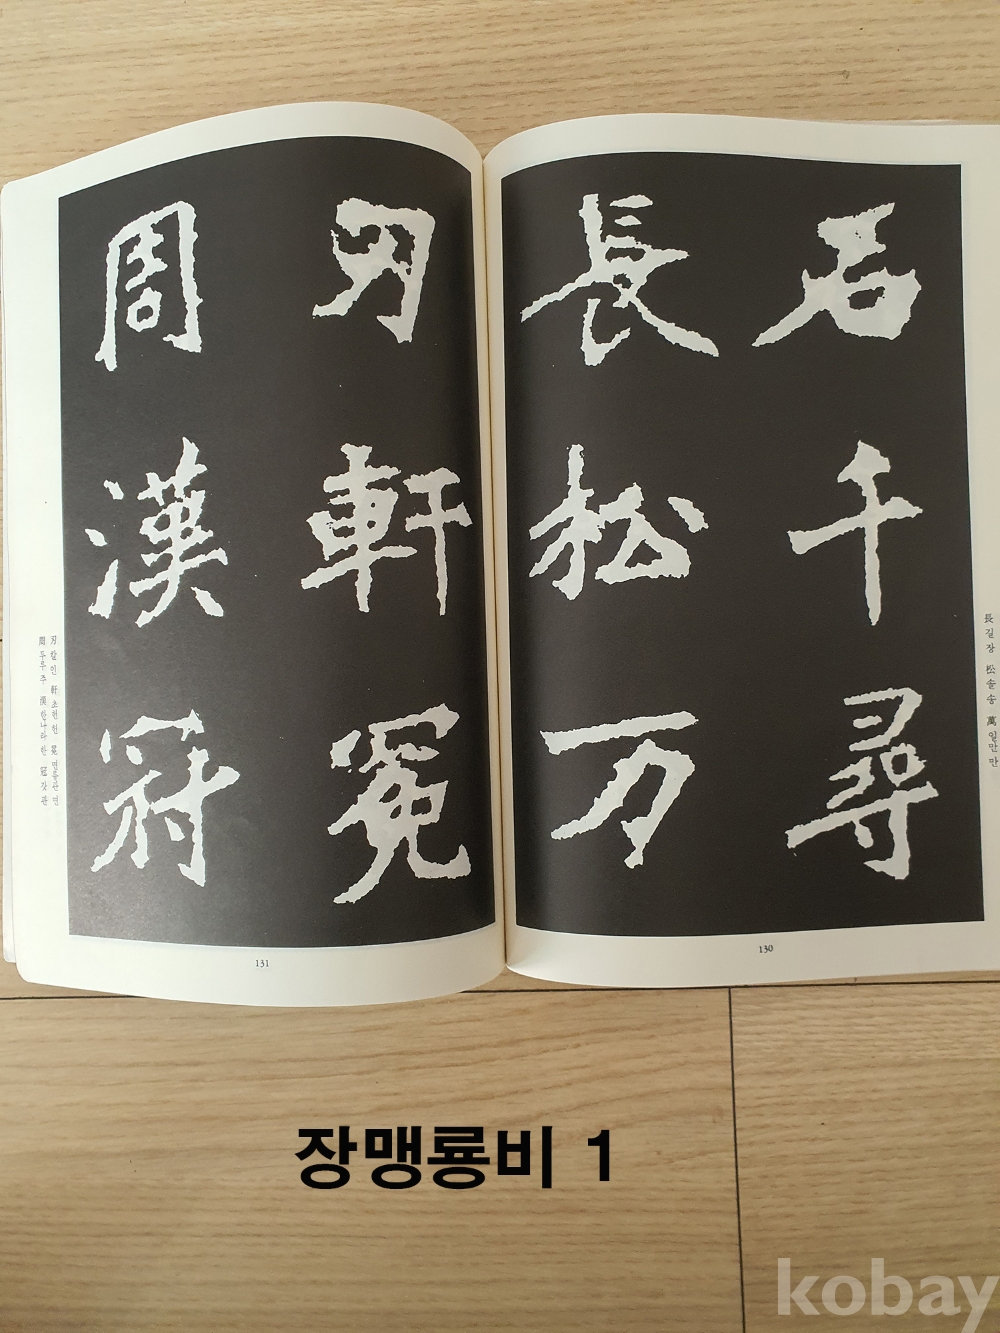 石千尋
長松万
刃軒冕
周漢冠
長길장 松솔송 萬일만만
刃칼인 軒초헌헌 冕면류관면
周두루주 漢한나라한 冠갓관
130
131
장맹룡비 1
kobay